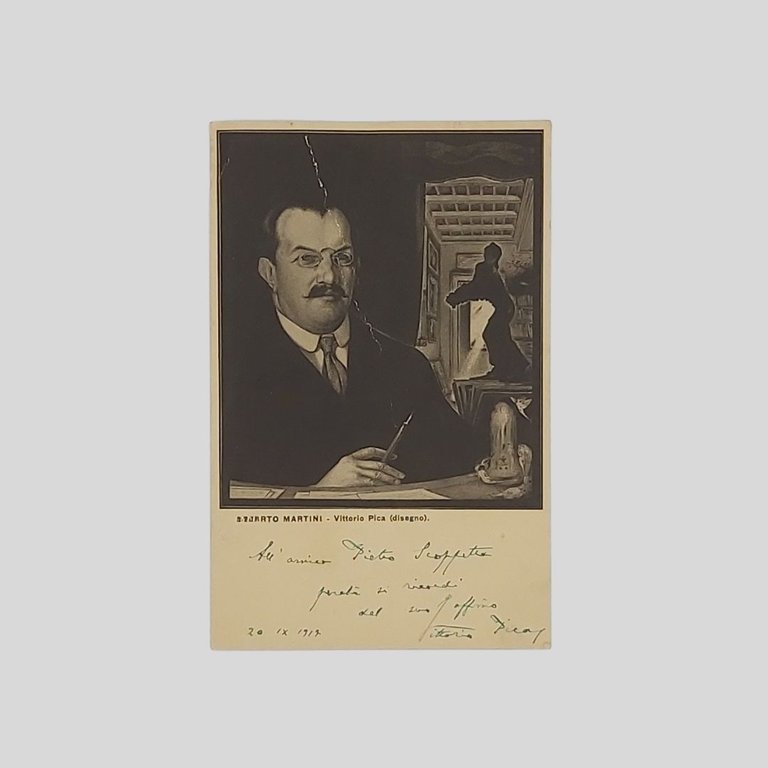 ALBERTO MARTINI - Vittorio Pica (disegno).
All' amico Pietro Scoppetta
perché si ricordi
del suo aff.mo
Vittorio Pica
20 IX 1917